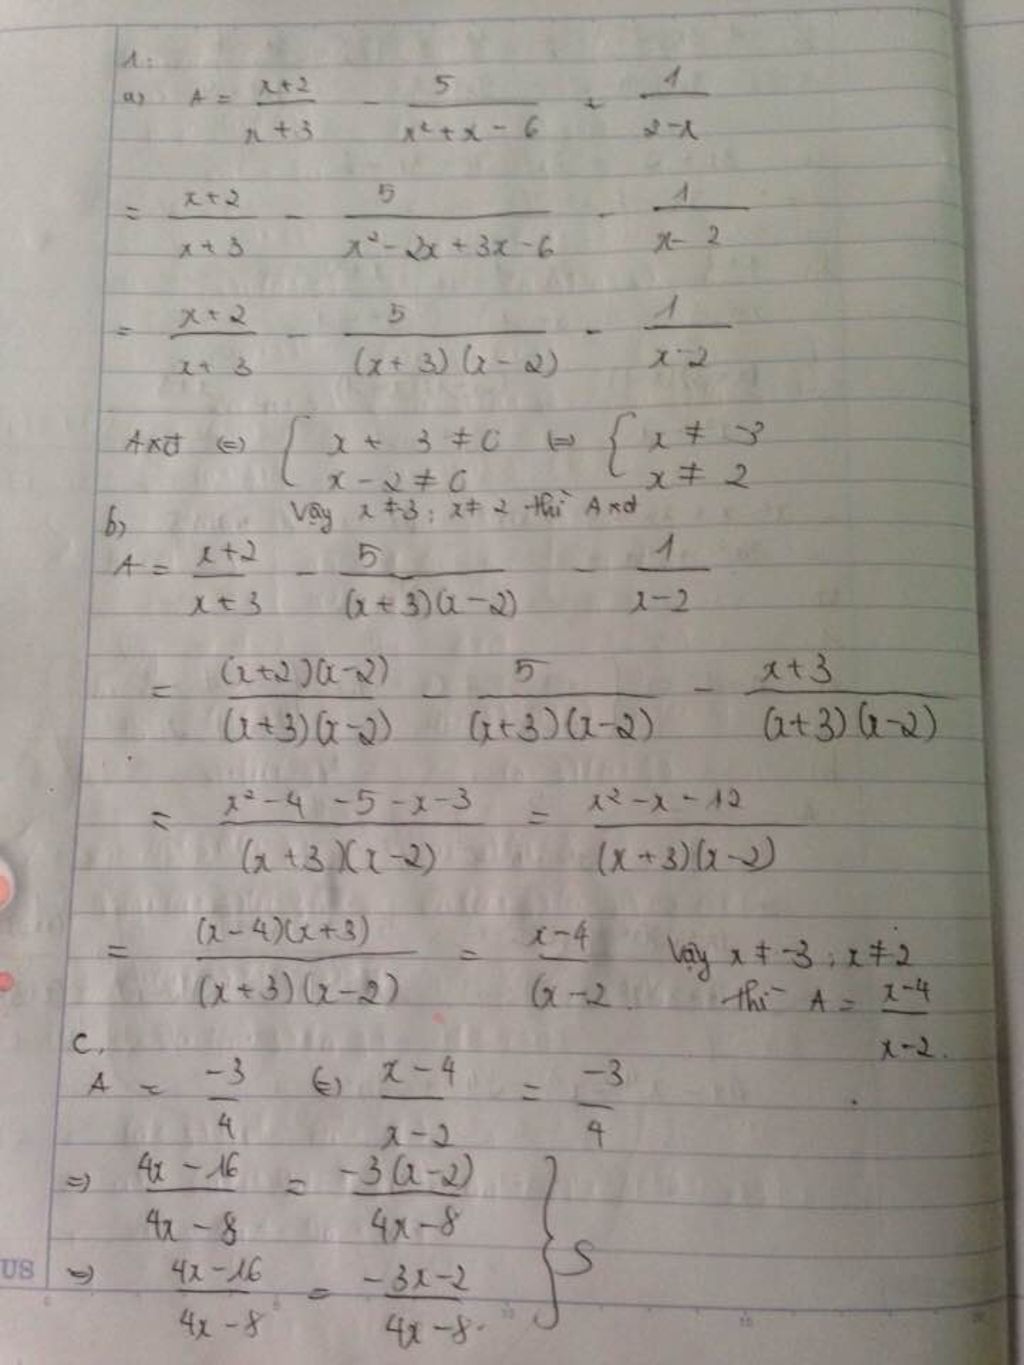 1.
a) A = \frac{x+2}{x+3} - \frac{5}{x²+x-6} + \frac{1}{2-x}
= \frac{x+2}{x+3} - \frac{5}{x²-2x+3x-6} - \frac{1}{x-2}
= \frac{x+2}{x+3} - \frac{5}{(x+3)(x-2)} - \frac{1}{x-2}
Axđ ⇔ { x+3≠0 ⇔ { x≠-3
x-2≠0 x≠2
b) Vậy x≠-3; x≠2 thì Axđ
A = \frac{x+2}{x+3} - \frac{5}{(x+3)(x-2)} - \frac{1}{x-2}
= \frac{(x+2)(x-2)}{(x+3)(x-2)} - \frac{5}{(x+3)(x-2)} - \frac{x+3}{(x+3)(x-2)}
= \frac{x²-4-5-x-3}{(x+3)(x-2)} = \frac{x²-x-12}{(x+3)(x-2)}
= \frac{(x-4)(x+3)}{(x+3)(x-2)} = \frac{x-4}{(x-2} Vậy x≠-3; x≠2
thì A = \frac{x-4}{x-2}.
c.
A = \frac{-3}{4} ⇔ \frac{x-4}{x-2} = \frac{-3}{4}
⇒ \frac{4x-16}{4x-8} = \frac{-3(x-2)}{4x-8} } S
⇒ \frac{4x-16}{4x-8} = \frac{-3x-2}{4x-8}.
US